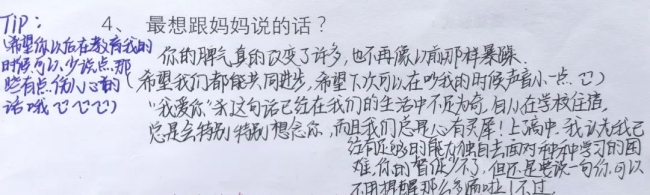 TIP:
(希望你以后在教育我的
时候可以少说点那
些有点伤人心的
话哦♡♡♡)
4、 最想跟妈妈说的话?
你的脾气真的改变了许多,也不再像以前那样暴躁.
(希望我们都能共同进步,希望下次可以在吵我的时候声音小一点.♡♡)
"我爱你"来这句话已经在我们的生活中不足为奇.自从在学校住宿,
总是会特别特别想念你,而且我们总是心有灵犀!上高中.我认为我已
经有足够的能力独自去面对种种学习的困
难,你的督促少不了,但还是想说一句你可以
不用提醒那么多遍啦!不过